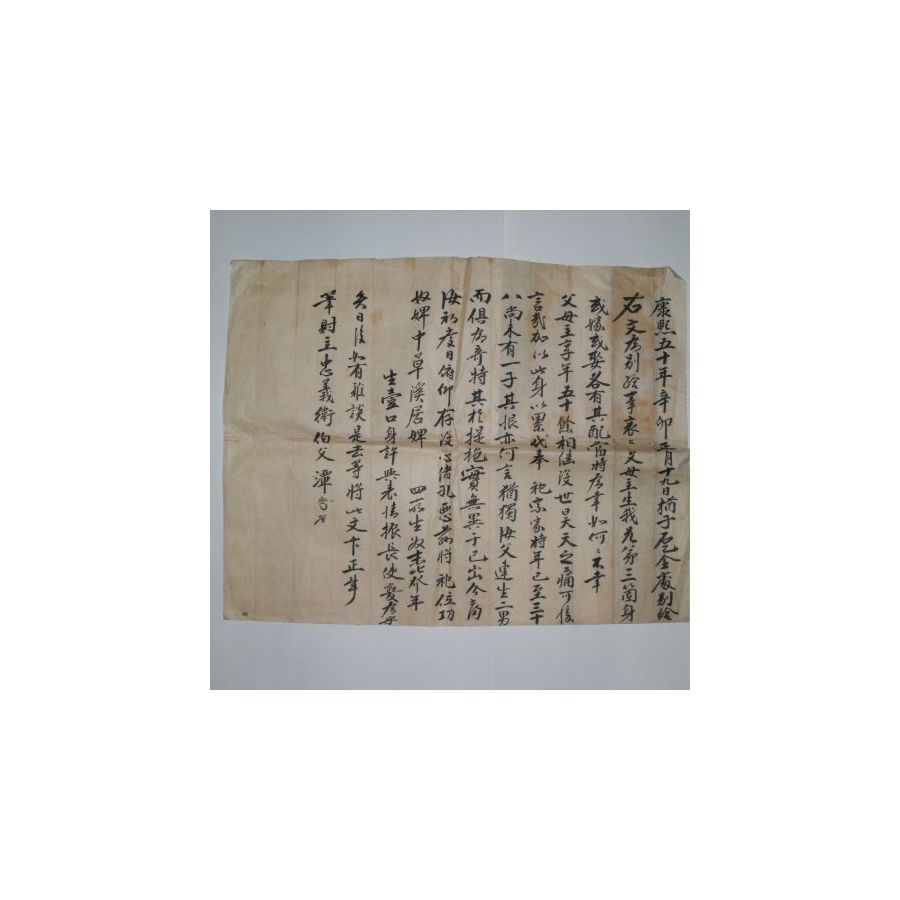 康熙五十年辛卯正月十九日猶子 處別給
右文為別給事哀哀父母主生我 第三箇身
或嫁或娶各有其配當時 幸如何 不幸
父母主享年五十餘相継沒世旲天之痛可復
言哉加以此身以累代奉祀宗家将年已至三十
八尚未有一子其恨亦何言猶獨汝父連生二男
而俱為奇特其於提抱實無異于己出今當
汝初度日俯仰存沒心 将祀位
奴婢中草溪居婢 四所生奴 年
生壹口身許與表情 長使
矣日後如有雜談是去等将此文卞正事
筆財主忠義衛伯父潭